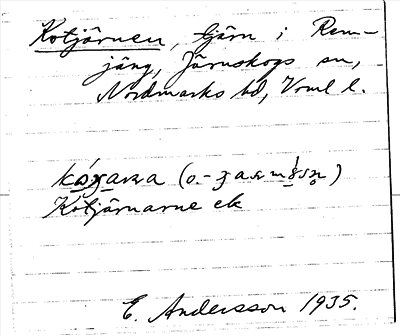 Kotjärnen, tjärn i Rem-
jäng, Järnskogs sn,
Nordmarks hd, Vrml l.
(o.-
Kotjärnarne ek
E. Andersson 1935.